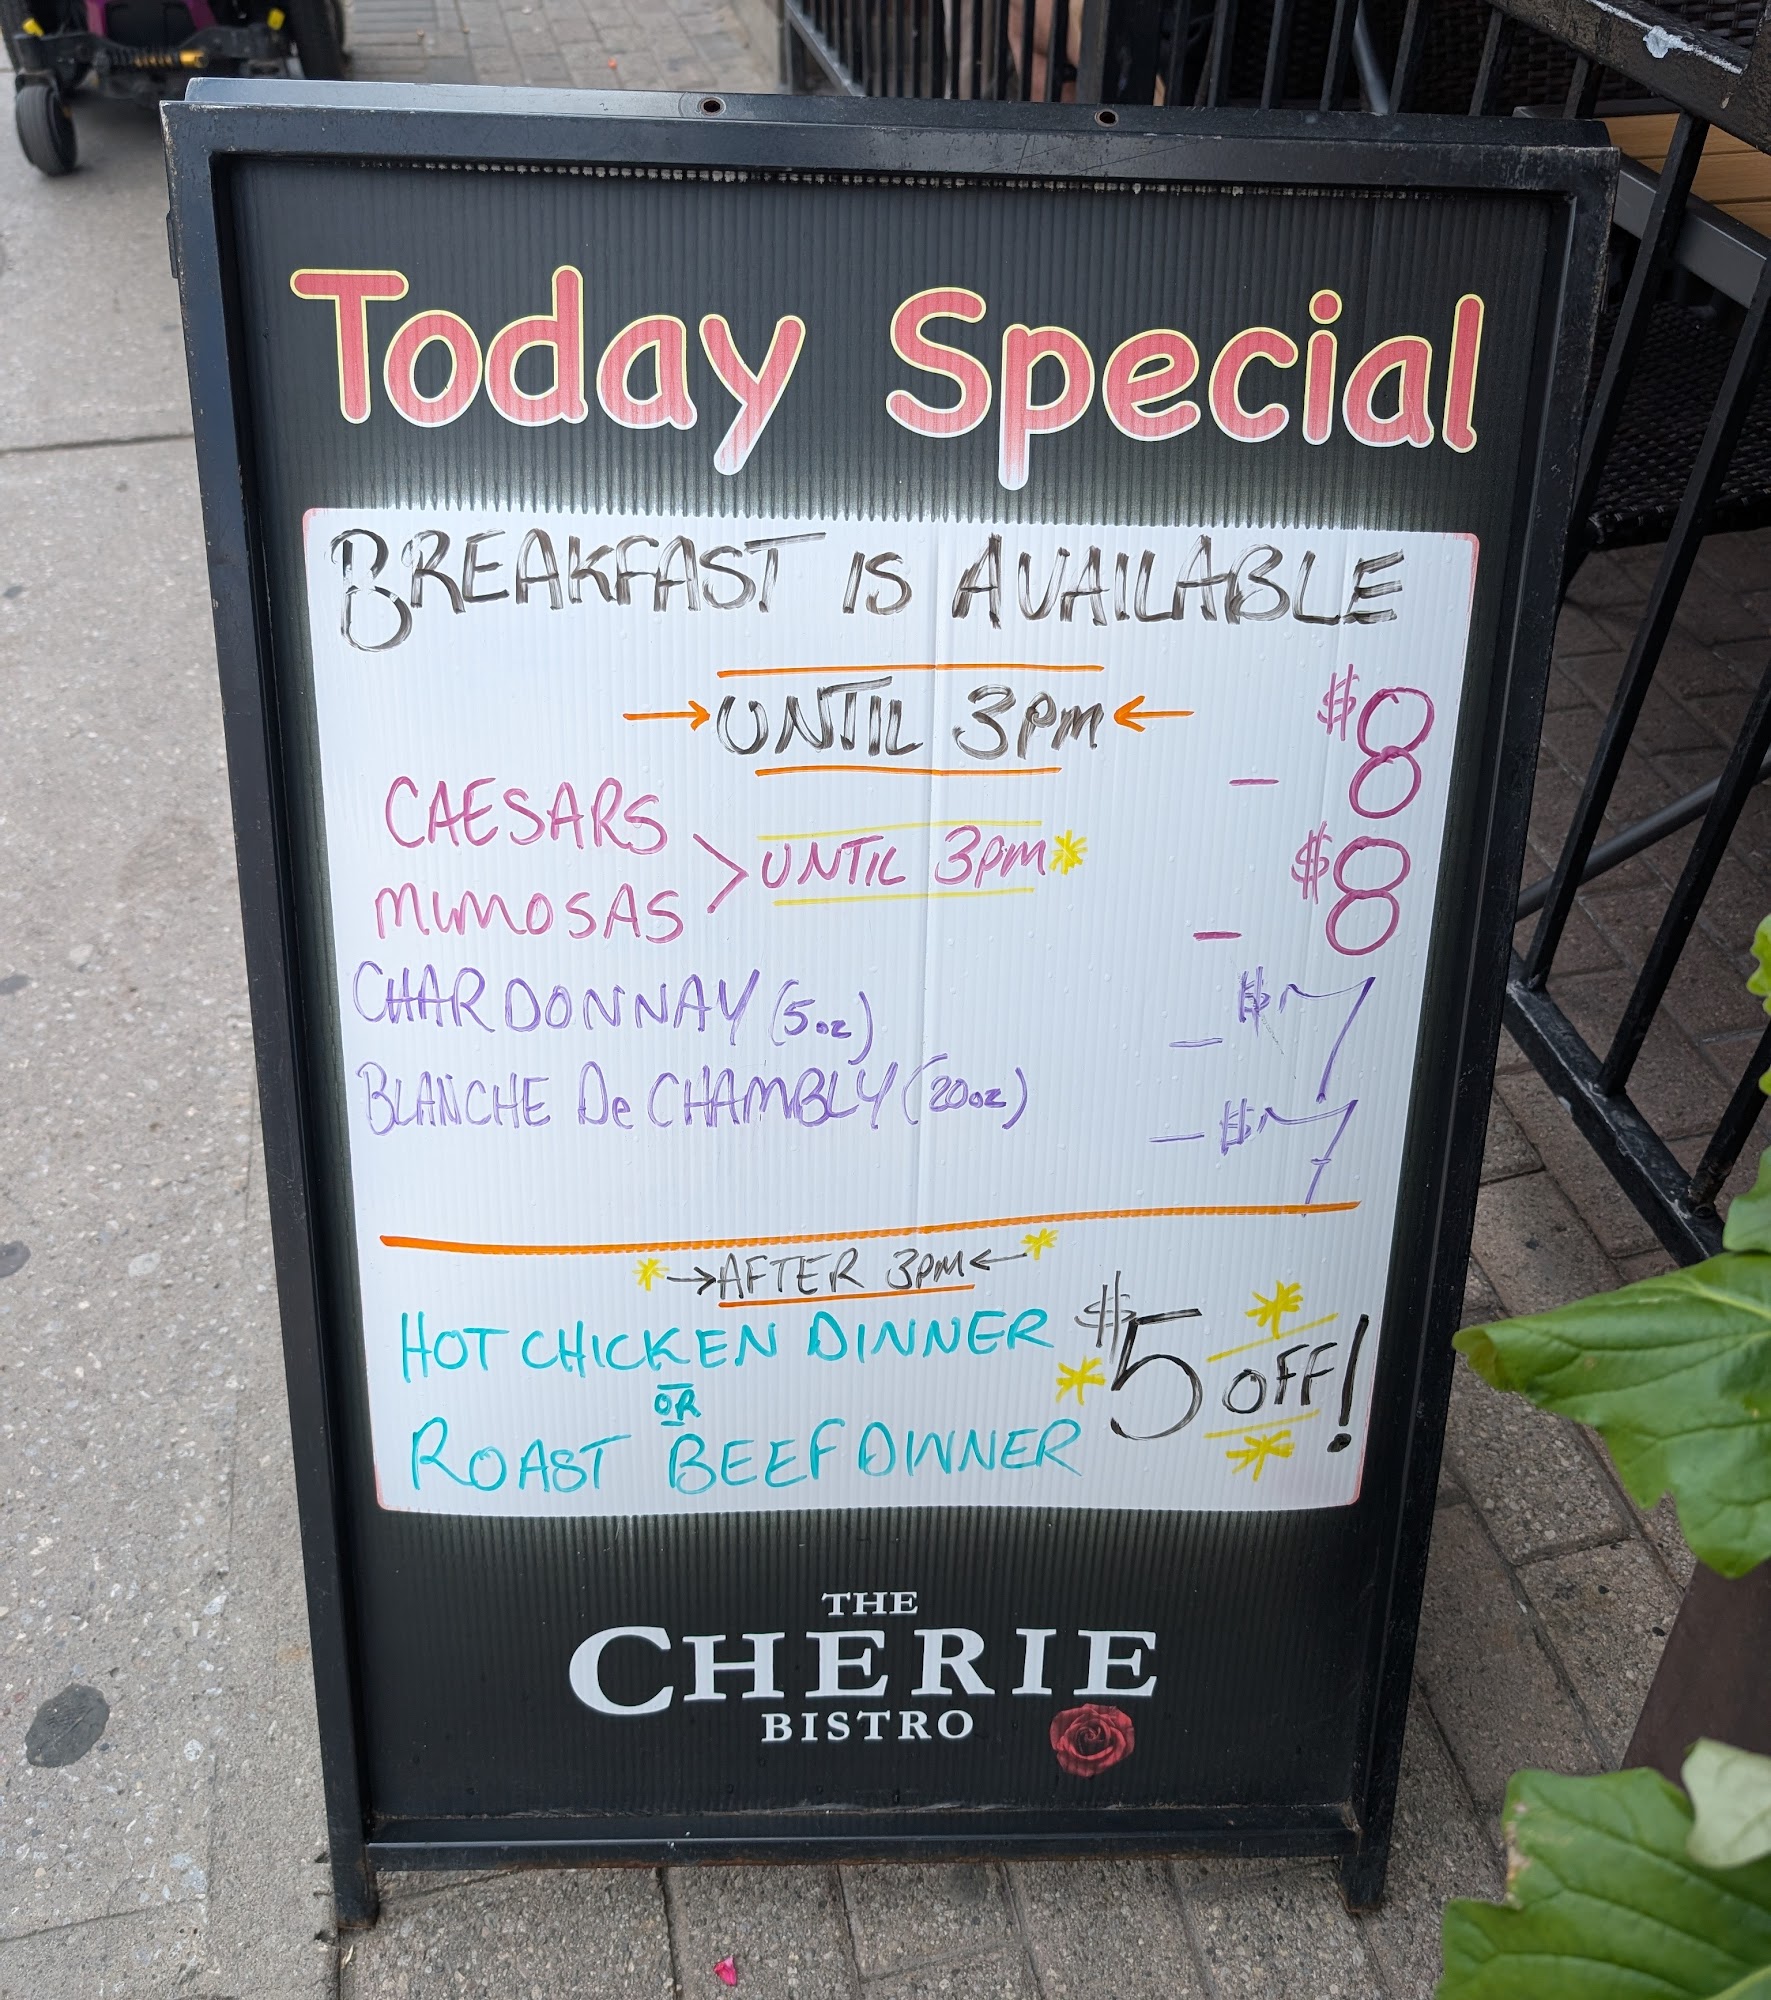 Today Special
BREAKFAST IS AVAILABLE
→ UNTIL 3PM ←
CAESARS - $8
> UNTIL 3PM*
MIMOSAS - $8
CHARDONNAY (5oz) - $7
BLANCHE De CHAMBLY (20oz) - $7
* → AFTER 3PM ← *
HOT CHICKEN DINNER
OR
$5 OFF!
ROAST BEEF DINNER
THE
CHERIE
BISTRO